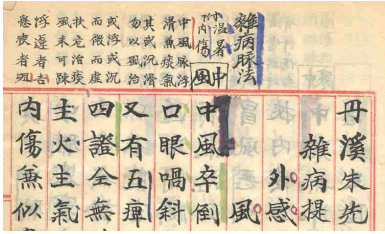 雜病脉法
溫暑
內傷
中風
中風脉浮
滑兼痰氣
其或沉滑
勿以風治
或浮或沉
而微而虛
扶危治痰
風未可疎
浮遲者吉
急疾者殂
丹溪朱先
雜病提
外感
風
中風卒倒
口眼喎斜
又有五痺
四證全無
主火主氣
內傷無似